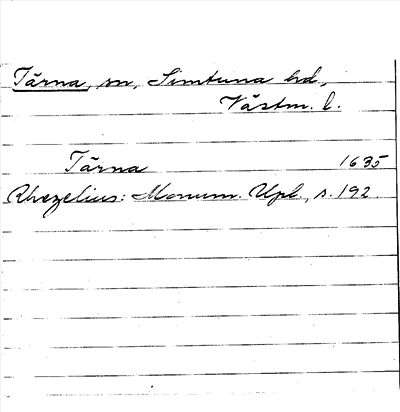 Tärna, sn, Simtuna hd.,
Västm. l.
Tärna 1635
Rhezelius: Monum. Upl., s. 192